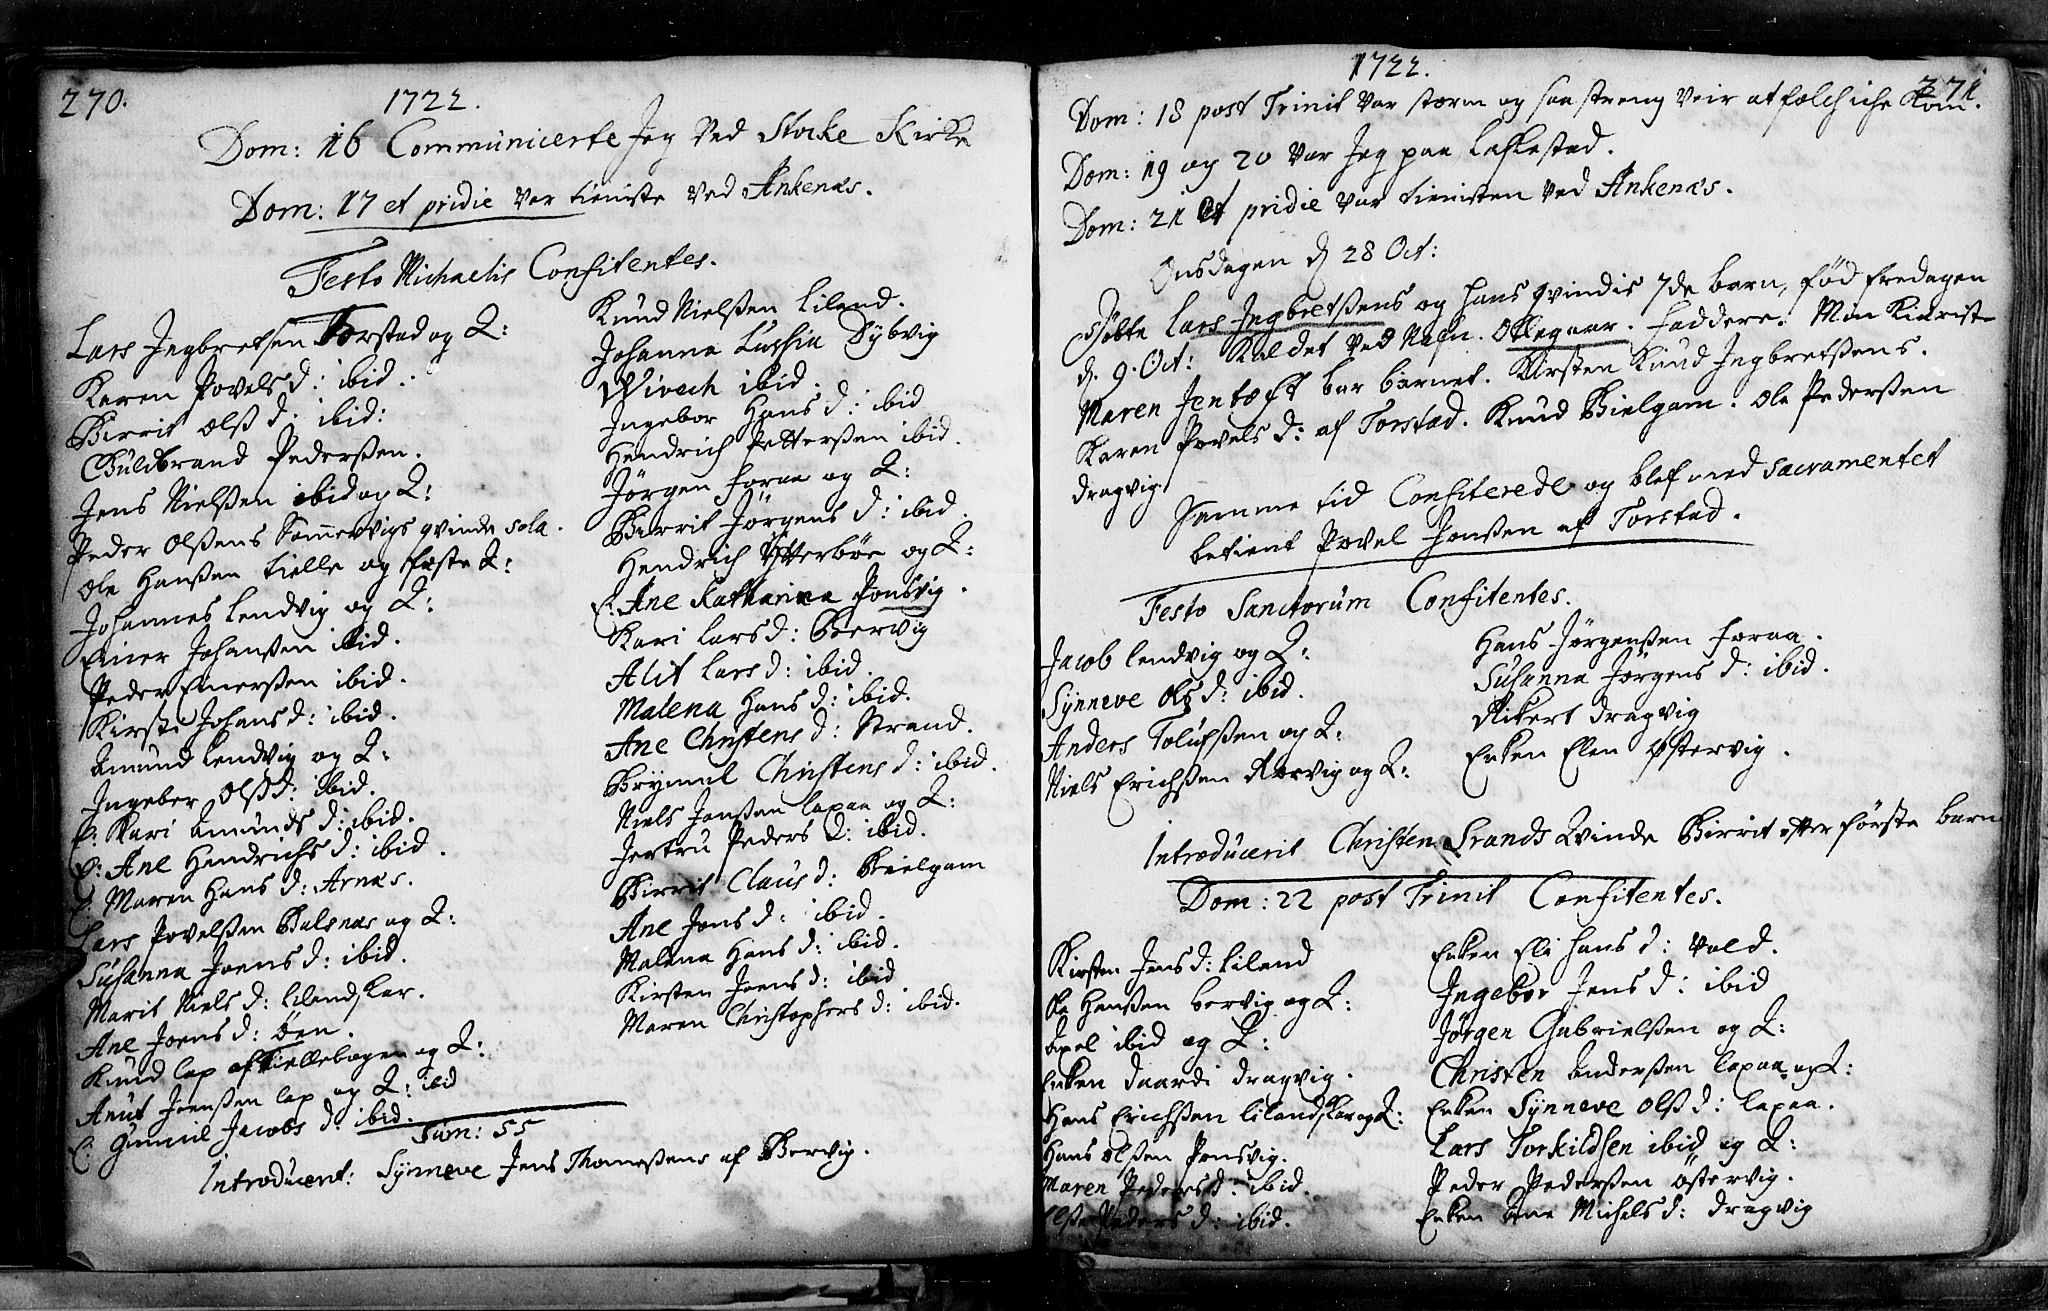 270.
1722.
Dom: 16 Communicerte Jeg ved Stocke Kirke
Dom: 17 et pridie var tieniste ved Ankenæs.
Festo Michaelis Confitentes.
Lars Ingbretsen Torstad og Q:
Karen Povels d: ibid.
Birrit Olss d: ibid:
Guldbrand Pederssen.
Jens Nielssen ibid og Q:
Peder Olssens Sommervigs qvinde sola.
Ole Hanssen Kielle og fæste Q:
Johannes Lendvig og Q:
Einer Johanssen ibid.
Peder Einerssen ibid.
Kirsti Johans d: ibid.
Amund Lendvig og Q:
Ingeber Olss d: ibid.
E: Kari Amunds d: ibid.
E: Ane Hendrichs d: ibid.
E: Maren Hans d: Arnæs.
Lars Povelssen Balsnæs og Q:
Susanna Joens d: ibid.
Marit Niels d: Lilandskar.
Ane Joens d: Öen.
Knud lap af Kiellebogen og Q:
Anut Joenssen lap og Q: ibid
E: Gunnil Jacobs d: ibid.
Knud Nielssen Liland.
Johanna Lussia Dybvig
Wivech ibid.
Ingebor Hans d: ibid
Hendrich Petterssen ibid.
Jörgen Foraa og Q:
Birrit Jörgens d: ibid.
Hendrich Ytterböe og Q:
E: Ane Katharina Ponsvig.
Kari Lars d: Bervig
Alit Lars d: ibid.
Malena Hans d: ibid.
Ane Christens d: Strand.
Brynnil Christens d: ibid.
Niels Jonssen Lapaa og Q:
Jertru Peders d: ibid.
Birrit Claus d: Bielgam
Ane Jons d: ibid.
Malena Hans d: ibid.
Kirsten Joens d: ibid
Maren Christophers d: ibid.
Sum: 55
Introducert: Synneve Jens Thomessens af Bervig.
271
1722.
Dom: 18 post Trinit var storm og saa streng veir at folch iche kom.
Dom: 19 og 20 var Jeg paa Leskestad.
Dom: 21 et pridie var tienisten ved Ankenæs.
Onsdagen d 28 Oct:
Döbte Lars Ingbretssens og hans qvindis 7de barn, föd fredagen
d. 9. Oct: Kaldet ved Nafn. Ollegaar. Faddere. Min Kiæriste
Maren Jentoft bar barnet. Kirsten Knud Ingbretssens.
Karen Povels d: af Torstad. Knud Bielgam. Ole Pederssen
dragvig.
Samme tid Confiterede og blef med sacramentet
betient Povel Jonssen af Torstad.
Festo Sanctorum Confitentes.
Jacob Lendvig og Q:
Synneve Ols d: ibid.
Anders Tolufssen og Q:
Niels Erichssen Rervig og Q:
Hans Jörgenssen Foraa.
Susanna Jörgens d: ibid.
Rikert dragvig
Enken Elen Østervig.
Introducerit Christen Strands Qvinde Birrit efter förste barn
Dom: 22 post Trinit Confitentes.
Kirsten Jens d: Liland
Ole Hanssen Bervig og Q:
Axel ibid og Q:
Enken Daardi dragvig.
Hans Erichssen Lilandskar og Q:
Hans Olssen Ponsvig.
Maren Peders d: ibid.
Else Peders d: ibid.
Enken Eli Hans d: Vold.
Ingebor Jens d: ibid
Jörgen Gabrielssen og Q:
Christen Anderssen Lapaa og Q:
Enken Synneve Olss d: Lapaa.
Lars Torkildsen ibid og Q:
Peder Pederssen Östervig.
Enken Ane Michels d: dragvig